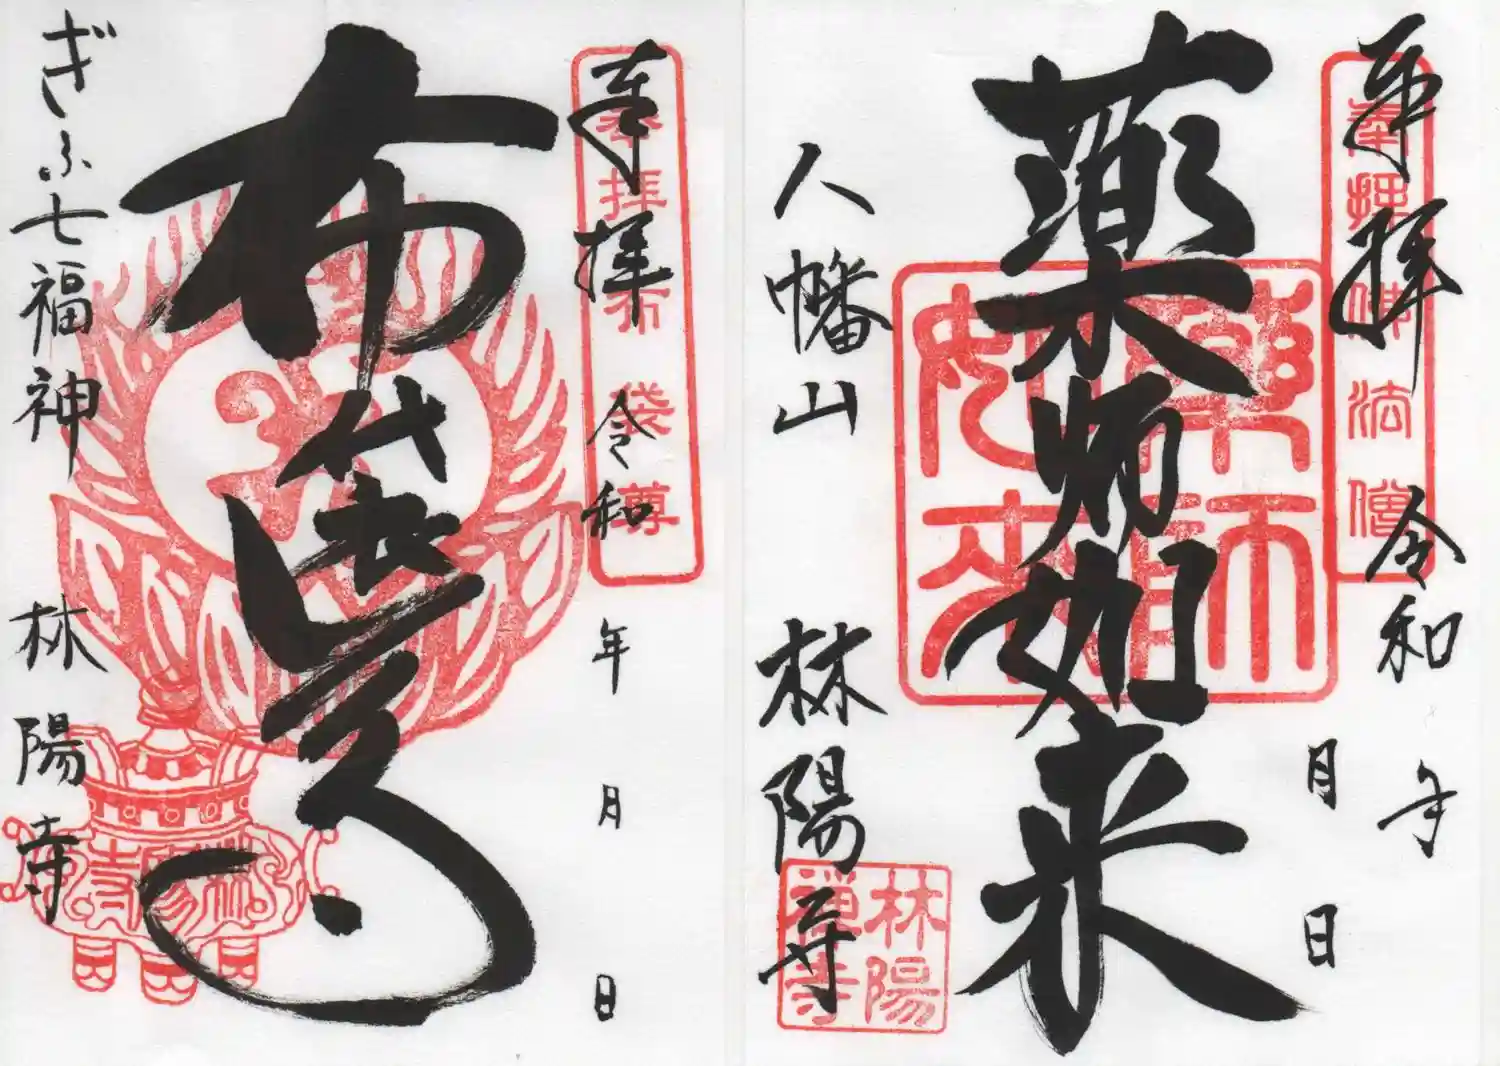 奉拝
令和 年
月 日
奉拝佛法僧
薬師如来
薬師如来
八幡山 林陽寺
林陽禅寺
奉拝
令和 年 月 日
奉拝布袋尊
布袋尊
ぎふ七福神 林陽寺
林陽寺